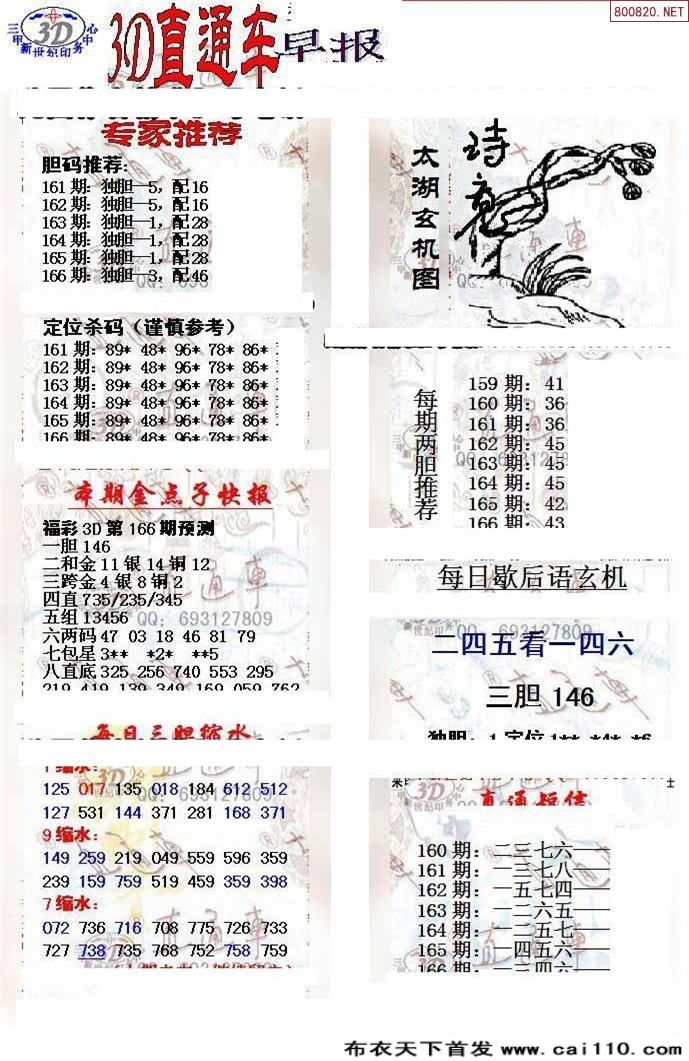 800820.NET
三甲 3D 中心
新世纪印务
3D直通车早报
专家推荐
胆码推荐:
161期: 独胆—5, 配16
162期: 独胆—5, 配16
163期: 独胆—1, 配28
164期: 独胆—1, 配28
165期: 独胆—1, 配28
166期: 独胆—3, 配46
定位杀码（谨慎参考）
161期: 89* 48* 96* 78* 86*
162期: 89* 48* 96* 78* 86*
163期: 89* 48* 96* 78* 86*
164期: 89* 48* 96* 78* 86*
165期: 89* 48* 96* 78* 86*
166期: 89* 48* 96* 78* 86*
本期金点子快报
福彩3D第166期预测
一胆146
二和金11银14铜12
三跨金4银8铜2
四直735/235/345
五组13456
QQ: 693127809
六两码47 03 18 46 81 79
七包星3** *2* **5
八直底325 256 740 553 295
219 419 139 349 169 059 762
每日三胆缩水
125 017 135 018 184 612 512
127 531 144 371 281 168 371
9缩水:
149 259 219 049 559 596 359
239 159 759 519 459 359 398
7缩水:
072 736 716 708 775 726 733
727 738 735 768 752 758 759
太湖玄机图
每期两胆推荐
159期: 41
160期: 36
161期: 36
162期: 45
163期: 45
164期: 45
165期: 42
166期: 43
每日歇后语玄机
QQ: 693127809
二四五看一四六
三胆146
独胆: 1 定位1** *4* **6
直通短信
160期: 二三七六——
161期: 一三七八——
162期: 一五七四——
163期: 一二六五——
164期: 一二五七——
165期: 一四五六——
166期: 一三四六——
布衣天下首发 www.cai110.com